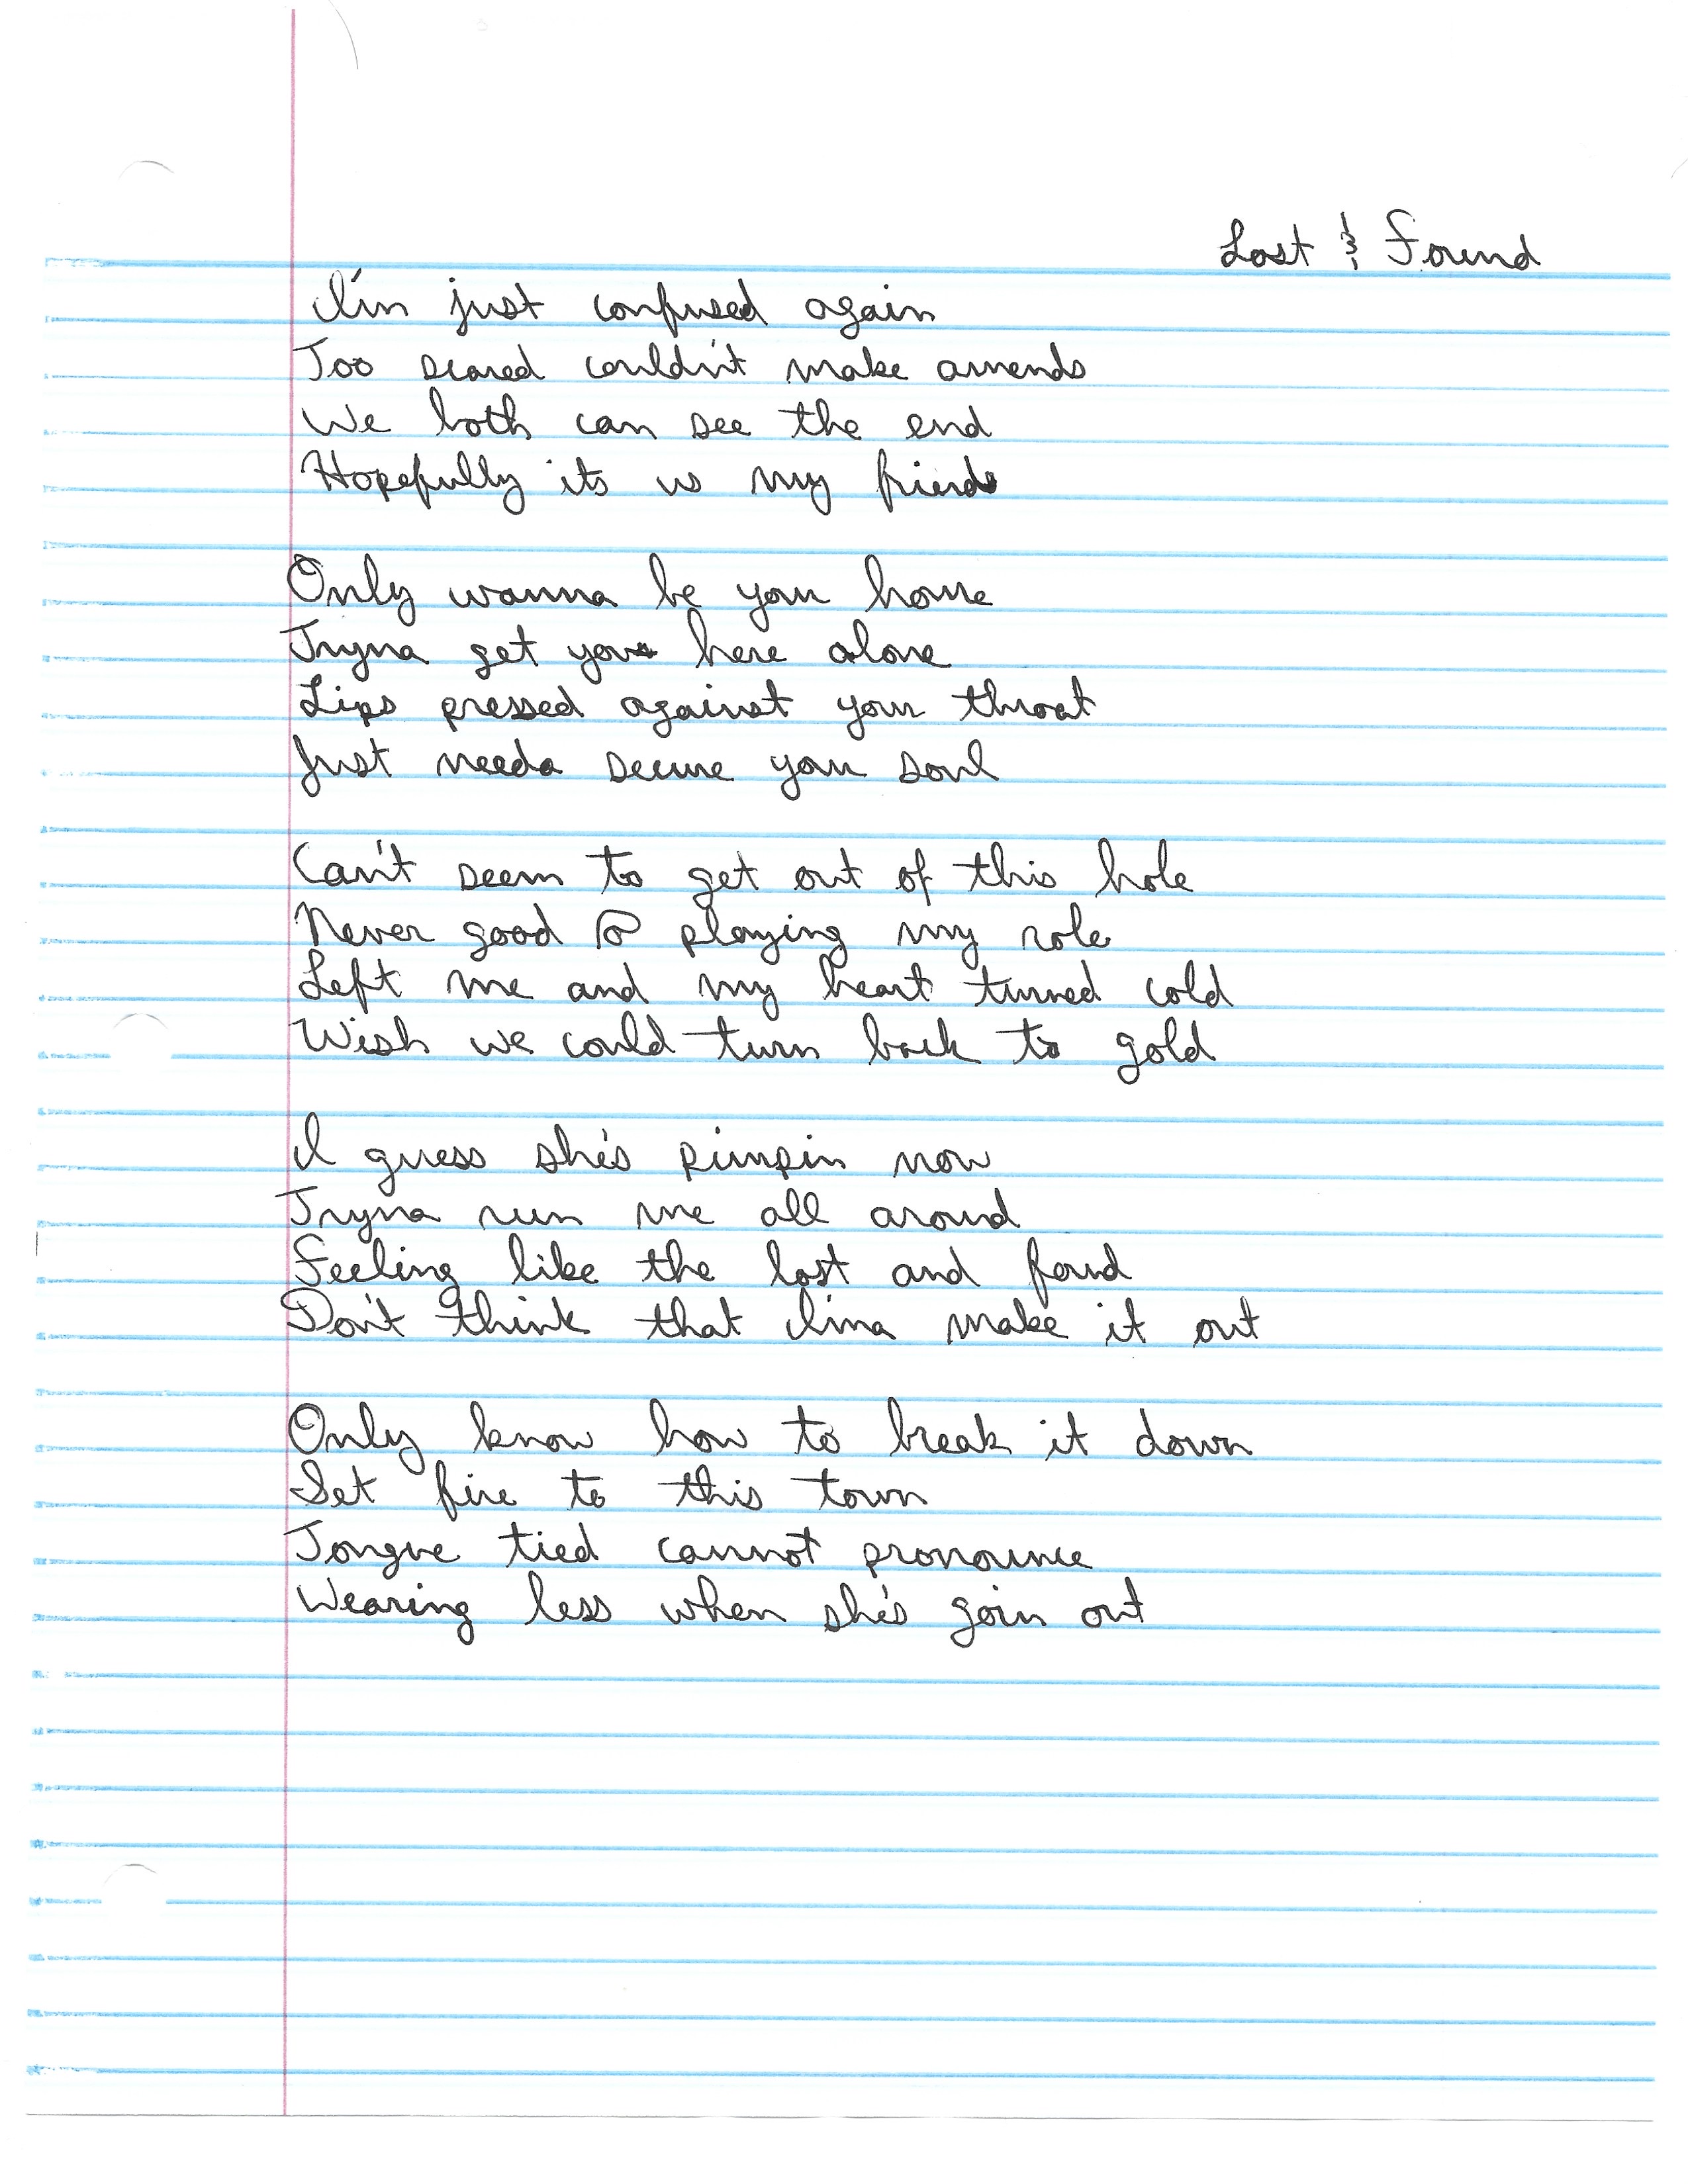 Lost & Found
I'm just confused again
Too scared couldn't make amends
We both can see the end
Hopefully its us my friend
Only wanna be your home
Tryna get you here alone
Lips pressed against your throat
Just needa secure your soul
Can't seem to get out of this hole
Never good @ playing my role
Left me and my heart turned cold
Wish we could turn back to gold
I guess she's pimpin now
Tryna run me all around
Feeling like the lost and found
Don't think that I'ma make it out
Only know how to break it down
Set fire to this town
Tongue tied cannot pronounce
Wearing less when she's goin out